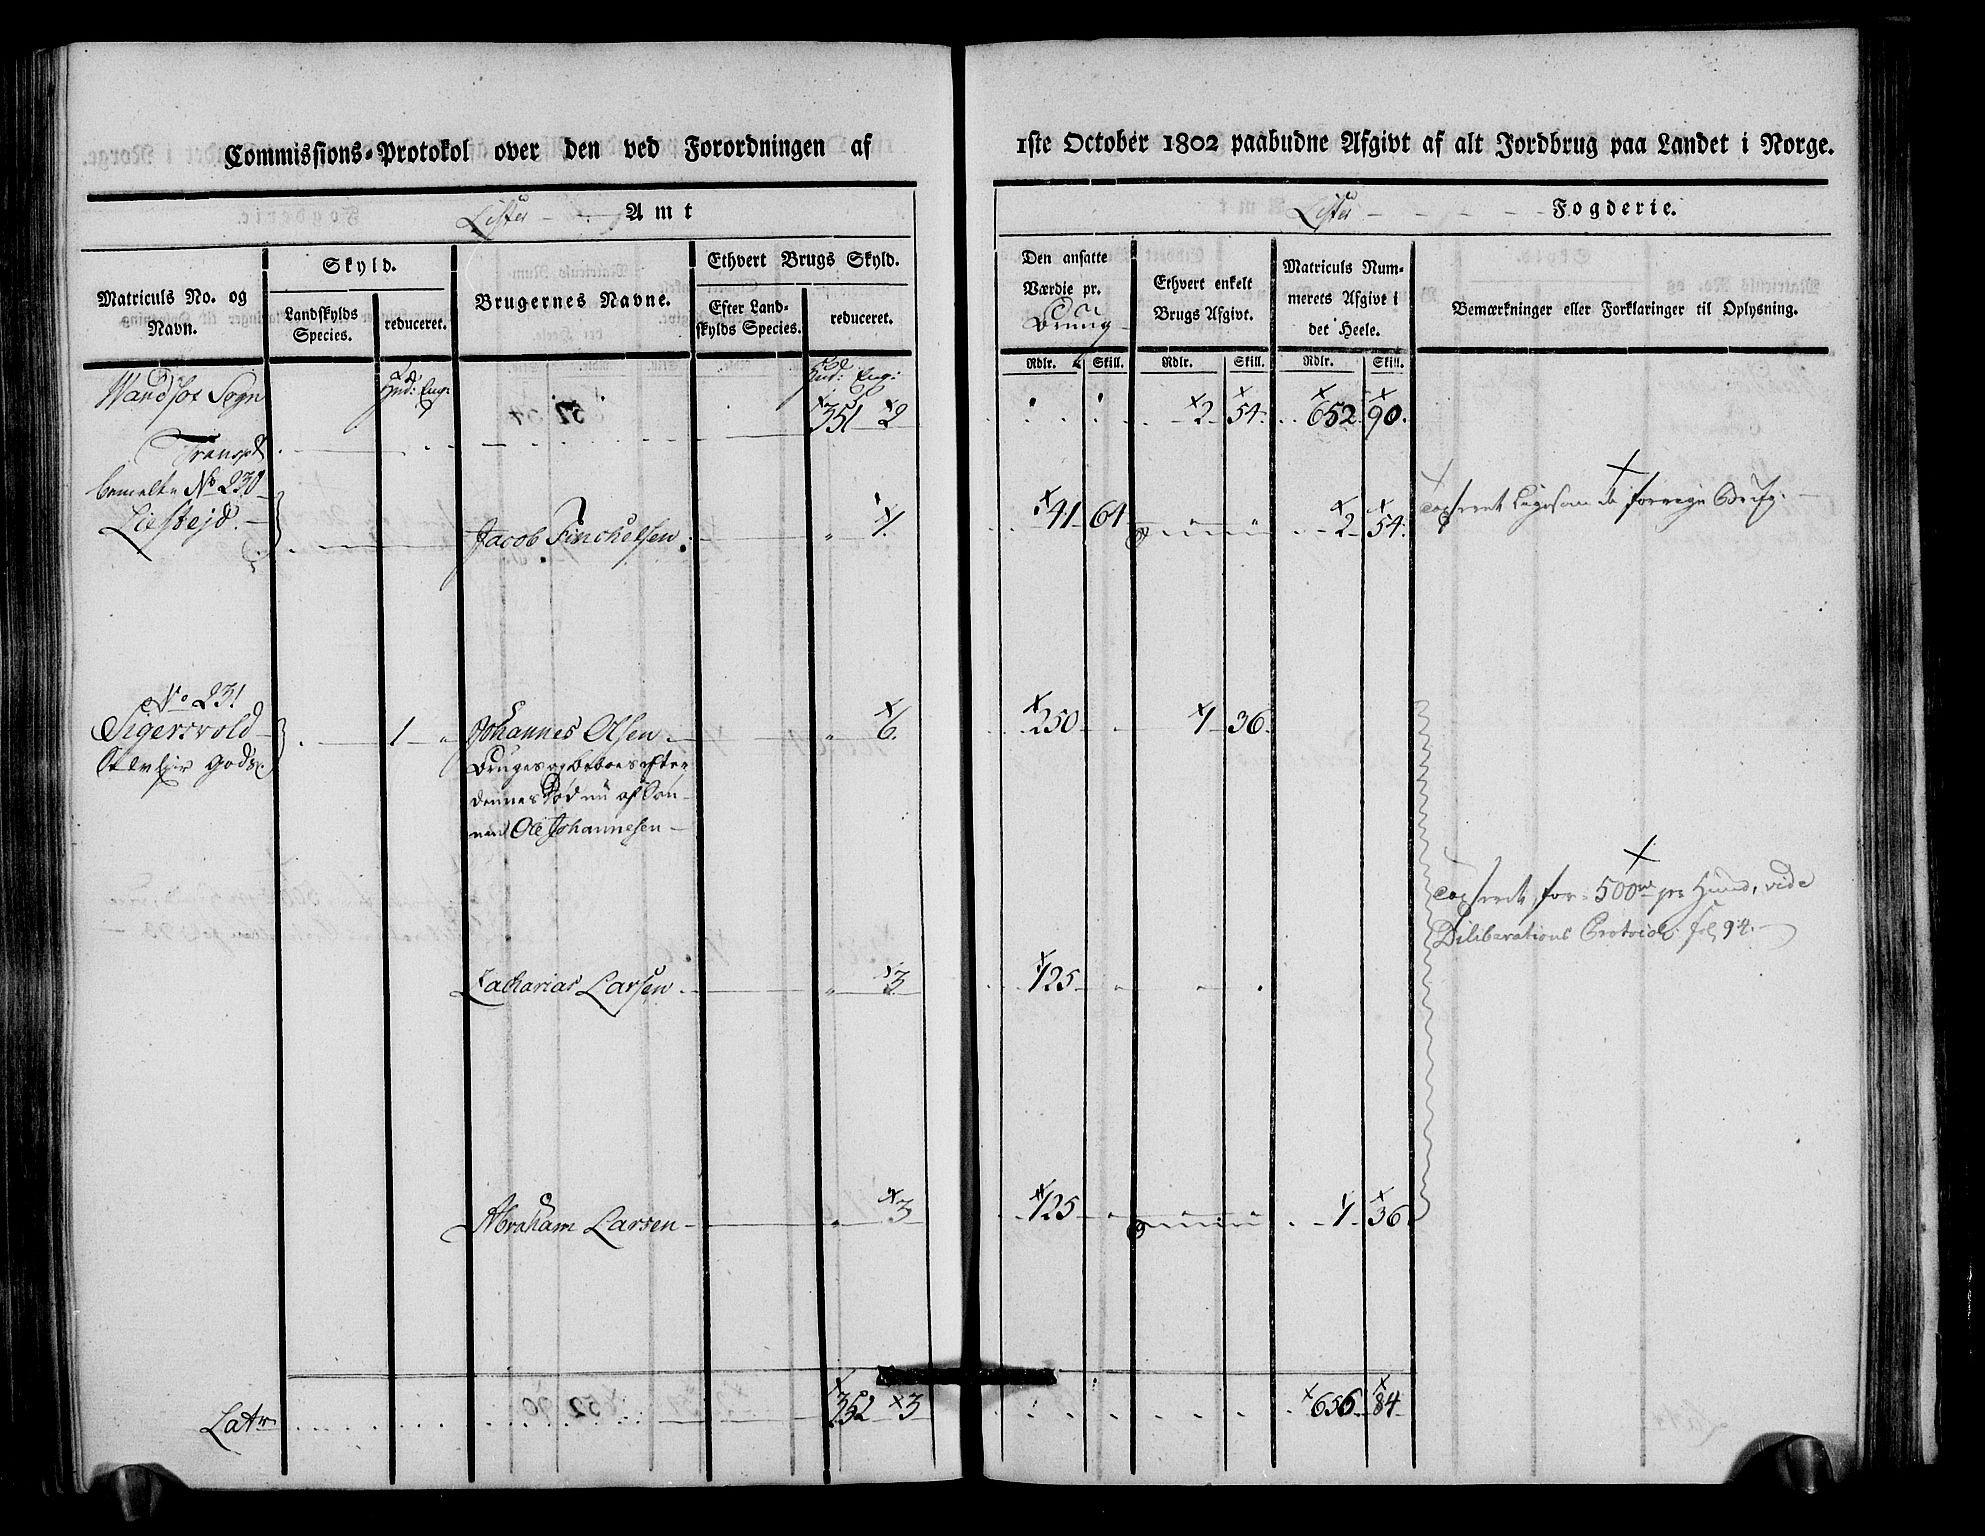 Commissions-Protokol over den ved Forordningen af
1ste October 1802 paabudne Afgivt af alt Jordbrug paa Landet i Norge.
Lister Amt
Lister Fogderie.
Matriculs No. og Navn.
Skyld.
Landskylds Species.
reduceret.
Brugernes Navne.
Ethvert Brugs Skyld.
Efter Landskylds Species.
reduceret.
Den ansatte Værdie pr.
Brug
Rdlr. Skill.
Ethvert enkelt Brugs Afgivt.
Rdlr. Skill.
Matriculs Nummerets Afgivt i det Heele.
Rdlr. Skill.
Bemærkninger eller Forklaringer til Oplysning.
Hud: Eng: Hud: Eng:
Sogn 351 2 2 54 652 90.
Transpt
No 230
Liestejd. Jacob Finchelsen 1. 41 64 2 54.
No 231
Sigersvold 1 Johannes Olsen 6. 250 1 36
gods
Bruges og beboes efter
dennes Død nu af Søn-
nen Ole Johannesen
for 500 pr Hud, vide
Deliberations Protocol fol 94.
Zacharias Larsen 3 125
Abraham Larsen 3 125 1 36
Latr 352 3 656 84